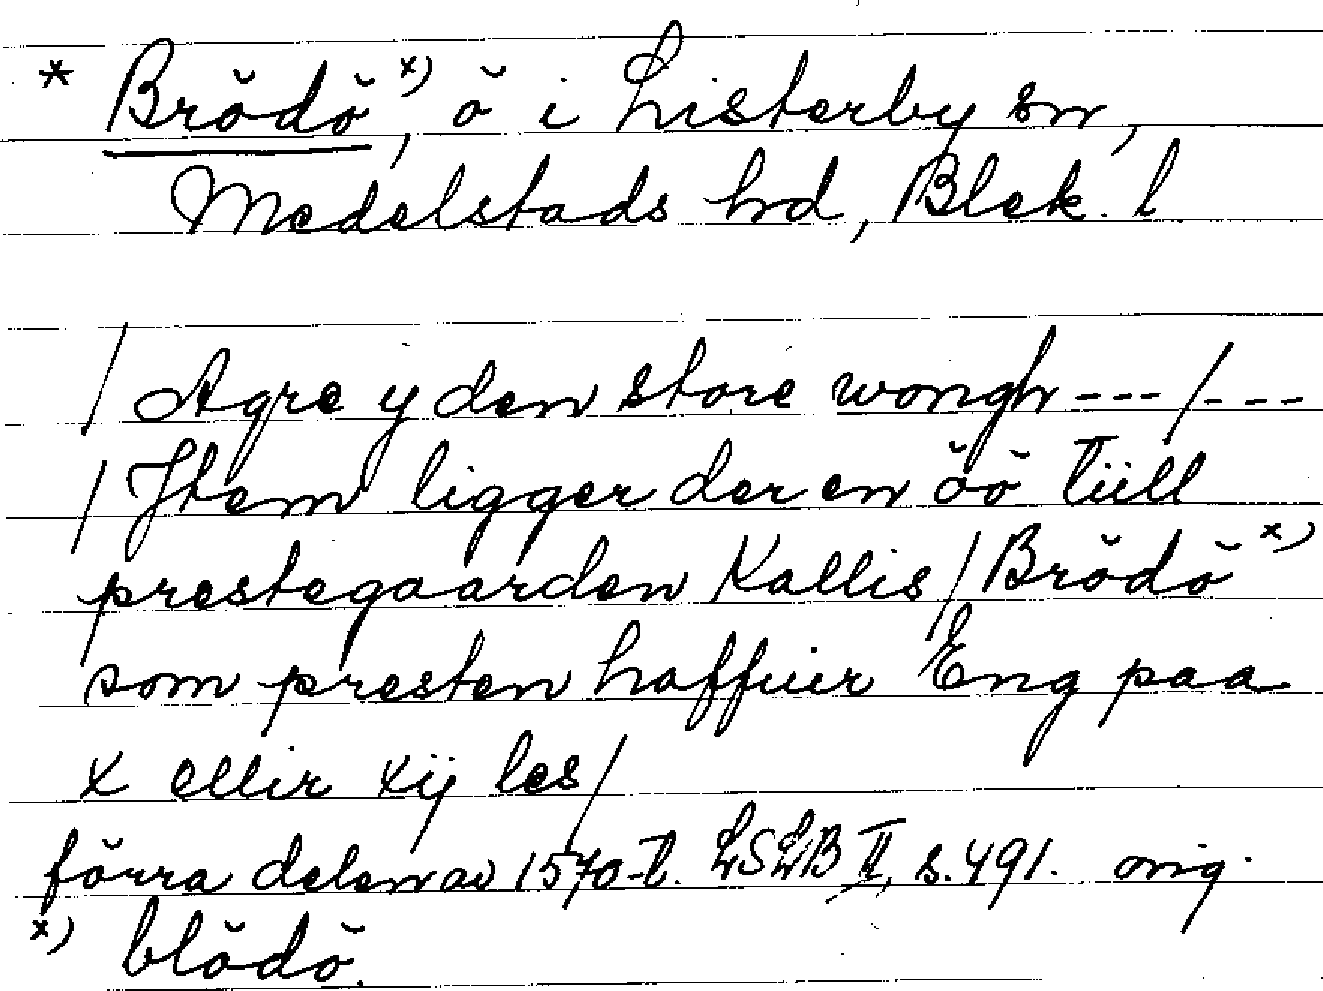 * Brödö x), ö i Listerby sn,
Medelstads hd, Blek. l.
/ Agre y den store wongh --- / ---
/ Jtem ligger der en öö tiill
prestegaarden Kallis / Brödö x)
som presten haffuer Eng paa
x ellir xij les /
förra delen av 1570-t. LSLB II, s. 491. orig.
x) blödö.